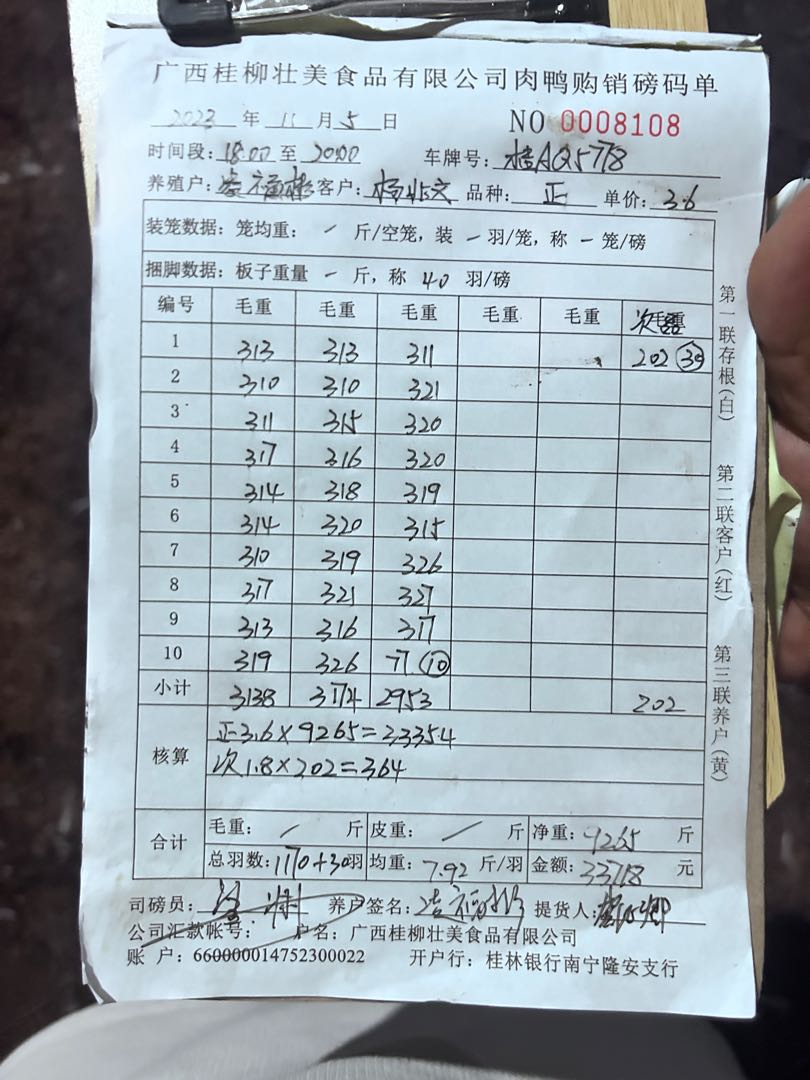 广西桂柳壮美食品有限公司肉鸭购销磅码单
2023年 11月5日 NO 0008108
时间段:18:00至20:00 车牌号:桂AQ5778
养殖户: 客户:杨 文 品种:正 单价:3.6
装笼数据:笼均重: / 斤/空笼,装 - 羽/笼,称 - 笼/磅
捆脚数据:板子重量 - 斤,称 40 羽/磅
编号 毛重 毛重 毛重 毛重 毛重 次
1 313 313 311 202 30
2 310 310 321
3 311 315 320
4 317 316 320
5 314 318 319
6 314 320 315
7 310 319 326
8 317 321 327
9 313 316 317
10 319 326 77 10
小计 3138 3174 2953 202
核算
正3.6×9265=33354
次1.8×202=364
合计
毛重: / 斤 皮重: / 斤 净重:9265 斤
总羽数:1170+30羽 均重:7.92 斤/羽 金额:33718 元
司磅员: 养户签名: 提货人:
公司汇款帐号: 户名:广西桂柳壮美食品有限公司
账 户:660000014752300022 开户行:桂林银行南宁隆安支行
第一联存根(白)
第二联客户(红)
第三联养户(黄)